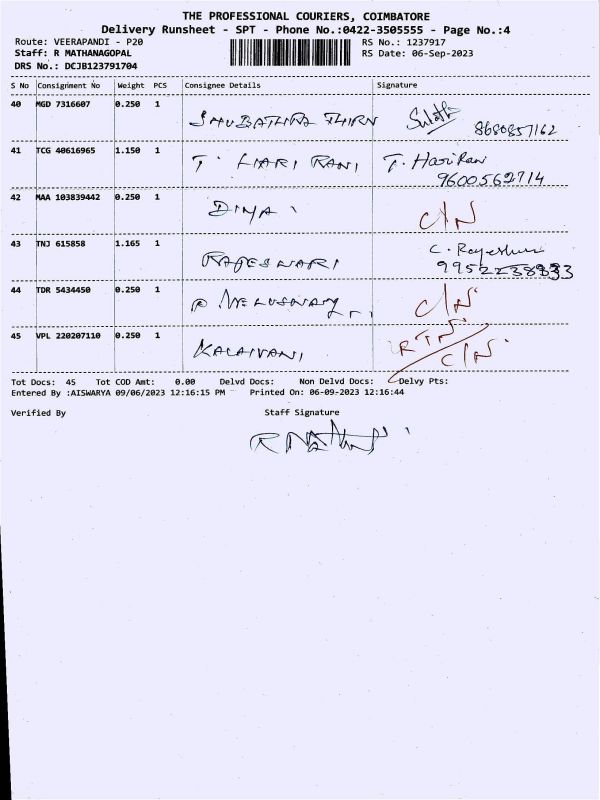 THE PROFESSIONAL COURIERS, COIMBATORE
Delivery Runsheet - SPT - Phone No.:0422-3505555 - Page No.:4
Route: VEERAPANDI - P20 RS No.: 1237917
Staff: R MATHANAGOPAL RS Date: 06-Sep-2023
DRS No.: DCJB123791704
S No Consignment No Weight PCS Consignee Details Signature
40 MGD 7316607 0.250 1
8680857162
41 TCG 40616965 1.150 1 T. HARI RANI T. Hari Rani
9600562714
42 MAA 103839442 0.250 1 DIYA C/N
43 TNJ 615858 1.165 1 RAJESWARI C. Rajeshwari
9952238833
44 TDR 5434450 0.250 1 C/N
45 VPL 220207110 0.250 1 KALAIVANI RTN
C/N
Tot Docs: 45 Tot COD Amt: 0.00 Delvd Docs: Non Delvd Docs: Delvy Pts:
Entered By :AISWARYA 09/06/2023 12:16:15 PM Printed On: 06-09-2023 12:16:44
Verified By Staff Signature